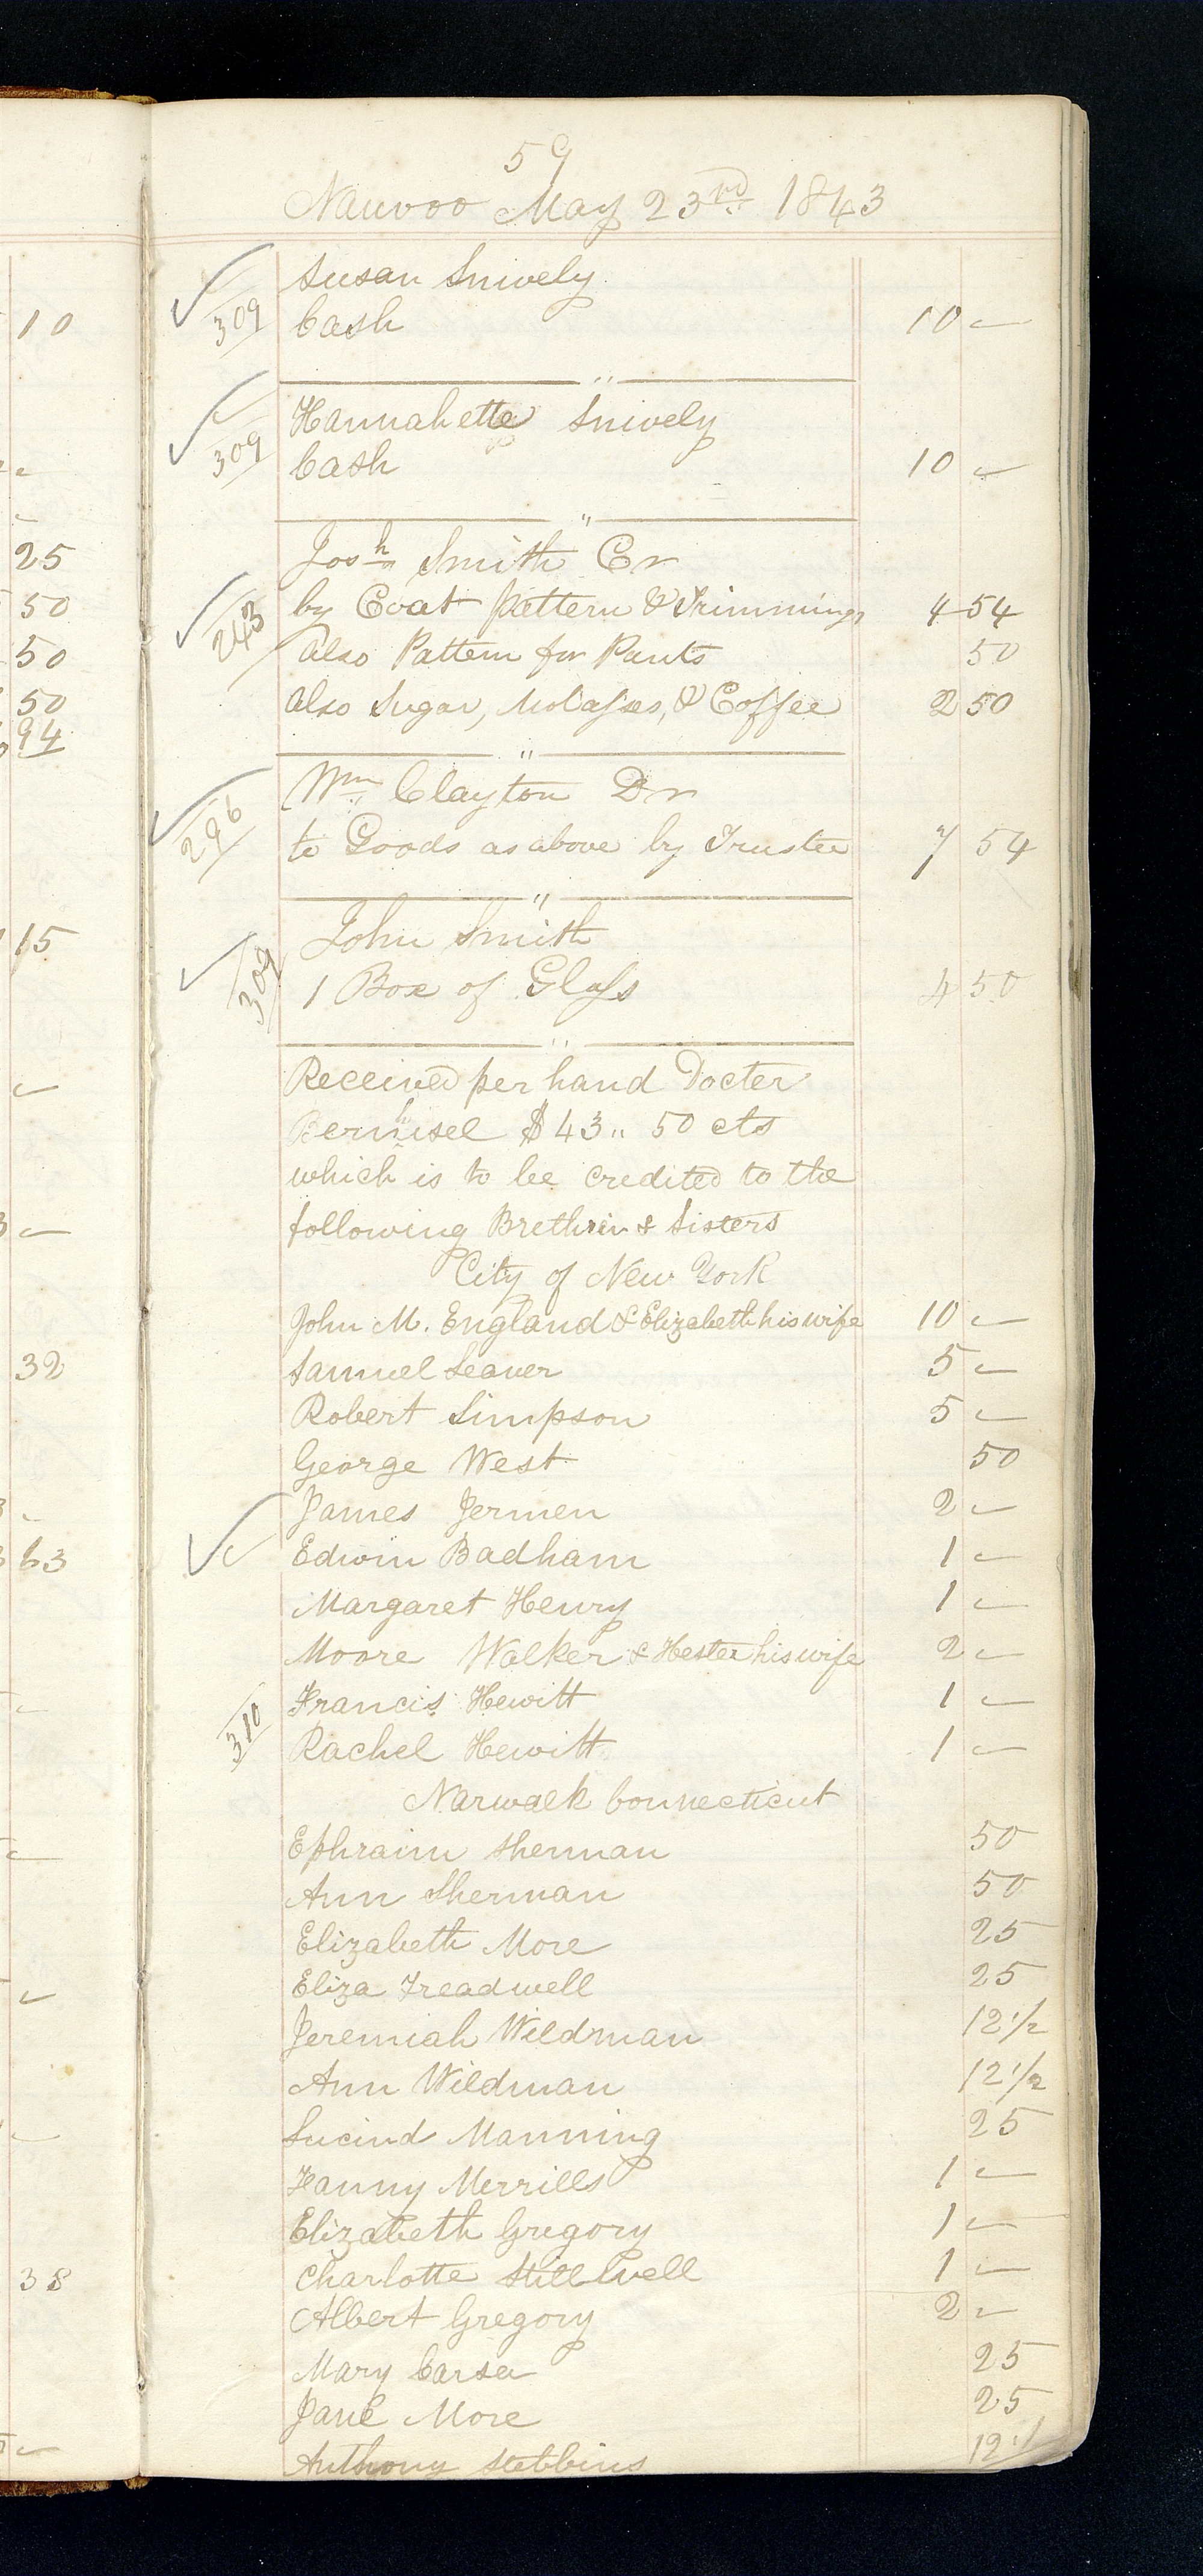 59
Nauvoo May 23rd 1843
Susan Snively
309 Cash 10 —
"
Hannahette Snively
309 Cash 10 —
"
Josh Smith Cr
243 by Coat pattern & Trimmings 4 54
also Pattern for Pants 50
also Sugar, Molasses, & Coffee 2 50
"
Wm Clayton Dr
296 to Goods as above by Trustee 7 54
"
John Smith
309 1 Box of Glass 4 50
"
Received per hand Docter
Bernhisel $43.. 50 cts
which is to be credited to the
following Brethrin & Sisters
City of New York
John M. England & Elizabeth his wife 10 —
Samuel Leaver 5 —
Robert Simpson 5 —
George West 50
James Jermen 2 —
Edwin Badham 1 —
Margaret Henry 1 —
Moore Walker & Hester his wife 2 —
Francis Hewitt 1 —
310 Rachel Hewitt 1 —
Narwalk Connecticut
Ephraim Sherman 50
Ann Sherman 50
Elizabeth More 25
Eliza Treadwell 25
Jeremiah Wildman 12 1/2
Ann Wildman 12 1/2
Lucind Manning 25
Fanny Merrills 1 —
Elizabeth Gregory 1 —
Charlotte Stillwell 1 —
Albert Gregory 2 —
Mary 25
Jane More 25
Anthony Stebbins
10
25
50
50
50
94
15
32
63
38